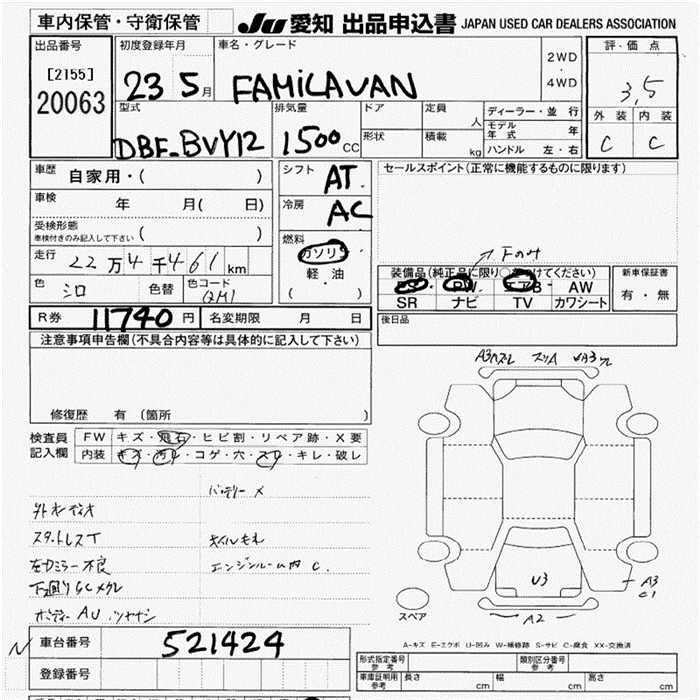 車内保管・守衛保管
JU 愛知 出品申込書 JAPAN USED CAR DEALERS ASSOCIATION
出品番号
[2155]
20063
初度登録年月
23 5月
車名・グレード
FAMiLAVAN
2WD
・
4WD
評・価 点
3,5
外 装 内 装
C C
型式
DBF-BVY12
排気量
1500cc
ドア
形状
定員
人
積載
kg
ディーラー・並 行
モデル年式 年
ハンドル 左・右
車歴
自家用・( )
車検 年 月( 日)
受検形態
車検付きのみ記入して下さい ( )
走行 22万4千461km
色 シロ 色替 色コード QM1
シフト AT
冷房 AC
燃料
ガソリン
・
軽 油
( )
セールスポイント(正常に機能するものに限ります)
Fのみ
装備品(純正品に限り○をつけてください)
PS PW エアB AW
SR ナビ TV カワシート
新車保証書
有・無
R券 11740円 名変期限 月 日
後日品
注意事項申告欄(不具合内容等は具体的に記入して下さい)
修復歴 有 (箇所 )
検査員記入欄
FW キズ・飛石・ヒビ割・リペア跡・X要
内装 キズ・汚れ・コゲ・穴・スレ・キレ・破レ
バッテリーX
スタットレスT
オイルもれ
左ドミラー不良
エンジンルーム内 C.
下廻りSCメクレ
ボディーAU
U3
A3
C1
A2
スペア
A-キズ E-エクボ U-凹み W-補修跡 S-サビ C-腐食 XX-交換済
N
車台番号 521424
登録番号
型式指定番号 参考
類別区分番号 参考
車庫証明用 参考 長さ cm 幅 cm 高さ cm